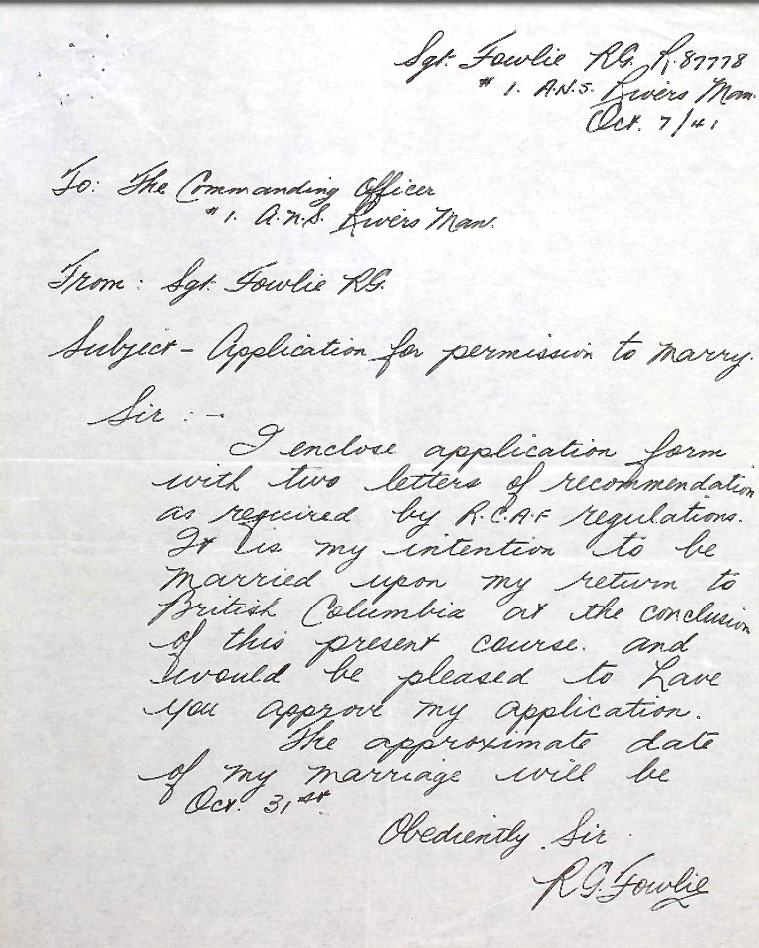 Sgt. Fowlie RG. R.87778
#1. A.N.S. Rivers Man.
Oct. 7/41
To: The Commanding Officer
#1. A.N.S. Rivers Man.
From: Sgt. Fowlie RG.
Subject - Application for permission to marry.
Sir : -
I enclose application form
with two letters of recommendation
as required by R.C.A.F regulations.
It is my intention to be
married upon my return to
British Columbia at the conclusion
of this present course. and
would be pleased to have
you approve my application.
The approximate date
of my marriage will be
Oct. 31st.
Obediently Sir.
RG. Fowlie